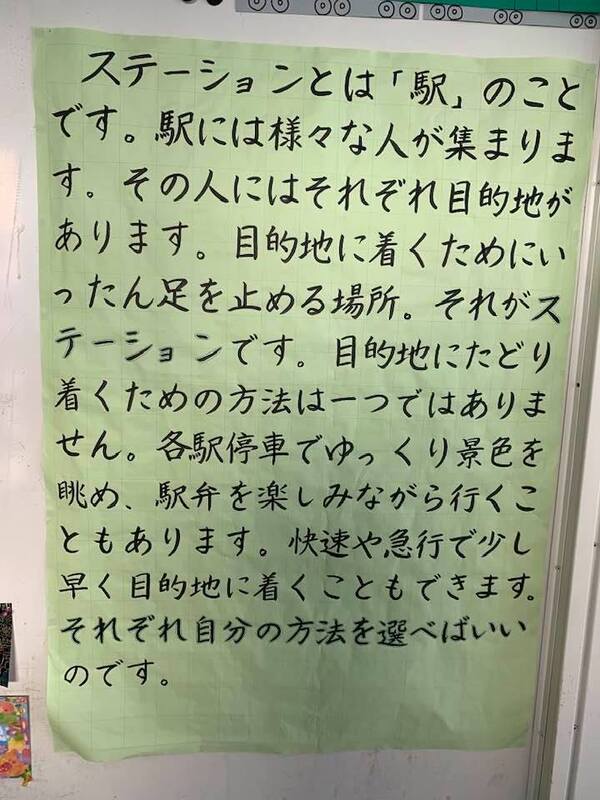 ステーションとは「駅」のこと
です。駅には様々な人が集まりま
す。その人にはそれぞれ目的地が
あります。目的地に着くためにい
ったん足を止める場所。それがス
テーションです。目的地にたどり
着くための方法は一つではありま
せん。各駅停車でゆっくり景色を
眺め、駅弁を楽しみながら行くこ
ともあります。快速や急行で少し
早く目的地に着くこともできます。
それぞれ自分の方法を選べばいい
のです。